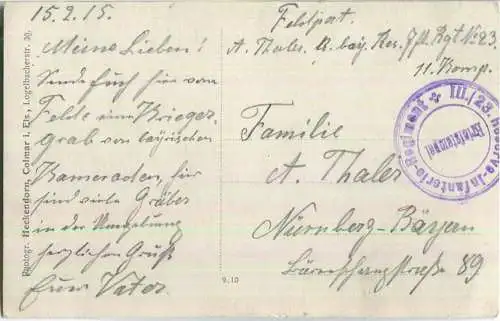 15.2.15.
Meine Lieben!
Sende Euch hier vom
Felde ein Krieger-
grab von bayrischen
Kameraden, hier
sind viele Gräber
in der Umgebung
herzlichen Gruß
Euer Vater
Feldpost.
A. Thaler, K. bay. Res. Inft. Rgt. No. 23.
11. Komp.
Familie
A. Thaler
Nürnberg-Bayern
Bärenschanzstraße 89
III./23. Reserve-Infanterie-Regiment
Briefstempel
Photogr. Heckendorn, Colmar i. Els., Logelbacherstr. 30.
9.10